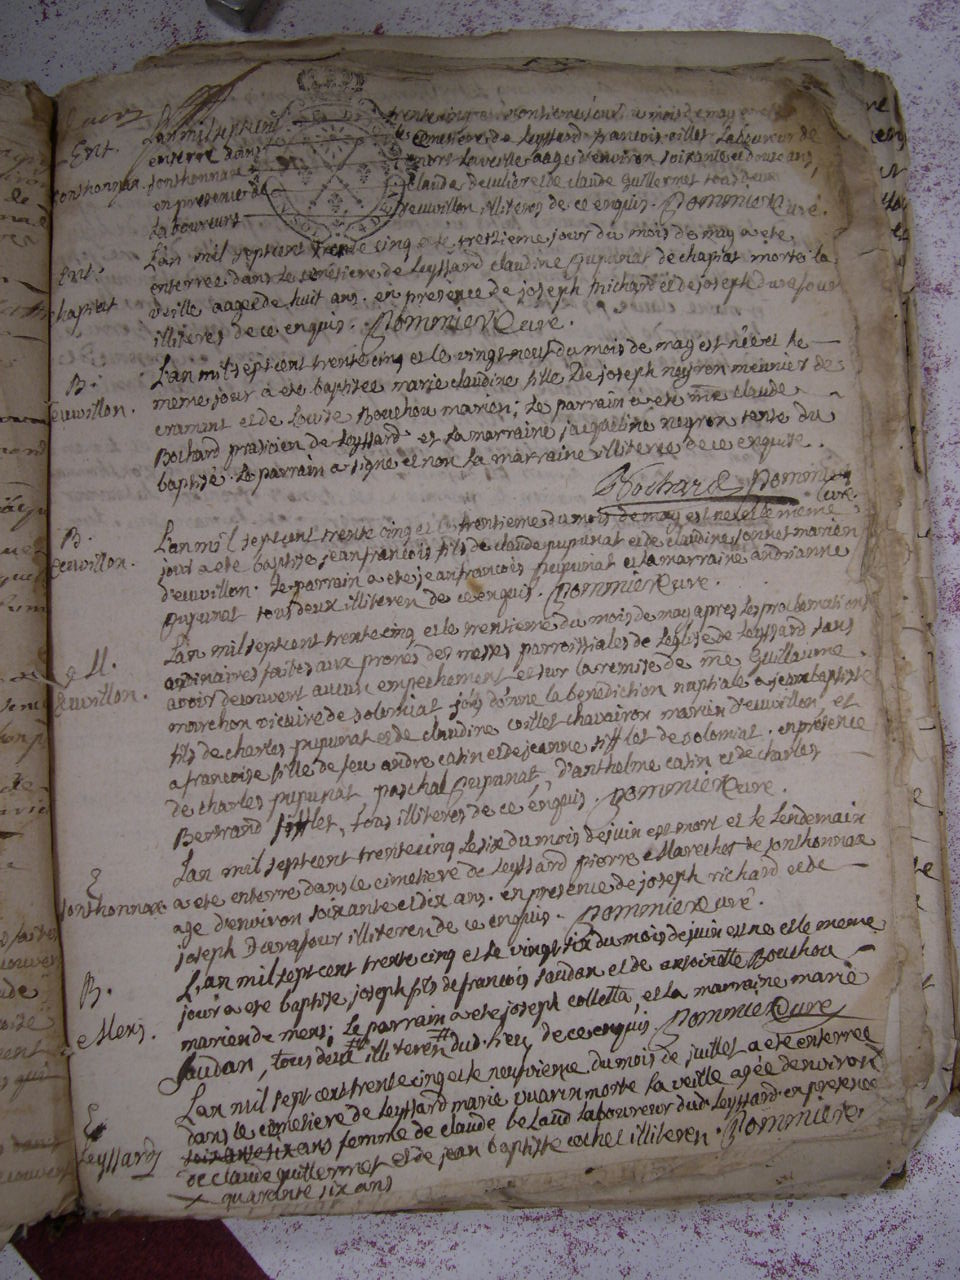 Ent.
Sonthonnax.
Lan mil sept cent trente cinq
enterré dans le cemetiere de Leyssard francois aillet Laboureur de
Sonthonnax mort la veille agé d'environ soixante et douze ans,
en presence de claude et de claude Guillermet tous deux
Laboureurs d'euvillon illiteres de ce enquis. Pommier Curé.
Ent.
chapiat
Lan mil sept cent trente cinq et le treizieme jour du mois de may a eté
enterrée dans le cemetiere de Leyssard claudine pupunat de chapiat morte la
veille aagée de huit ans. en presence de joseph richard et de joseph Durafour
illiteres de ce enquis. Pommier Curé.
B.
Euvillon.
L'an mil sept cent trente cinq et le vingt neuf du mois de may est née et le
meme jour a eté baptisée marie claudine fille De joseph neyron meunier de
cramant et de Louise Bouchou mariés; Le parrain a eté me claude
Bochard praticien de Leyssard et la marraine jacqueline neyron tante du
baptisé. Le parrain a signé et non la marraine illiterée de ce enquise.
Bochard Pommier
Curé.
B.
Euvillon.
L'an mil sept cent trente cinq et le trentieme du mois de may est né et le meme
jour a eté baptisé jean francois fils de claude pupunat et de claudine mariés
d'euvillon. Le parrain a eté jean francois pupunat et la marraine andrianne
pupunat tous deux illiteres de ce enquis. Pommier Curé.
M.
Euvillon.
Lan mil sept cent trente cinq et le trentieme du mois de may apres les proclamations
ordinaires faites aux prones des messes parroissiales de Leglise de Leyssard sans
avoir decouvert aucun empechement et sur la remise de me Guillaume
morchon vicaire de solomiat j'ay donné la benediction nuptiale a jean baptiste
fils de charles pupunat et de claudine collet chavairon mariés d'euvillon, et
a francoise fille de feu andre catin et de jeanne sifflet de solomiat. en presence
de charles pupunat, paschal pupunat, d'anthelme catin et de charles
Bertrand sifflet, tous illiteres de ce enquis. Pommier Curé.
E
Sonthonnax
Lan mil sept cent trente cinq Le six du mois de juin est mort et le Lendemain
a eté enterré dans le cimetiere de Leyssard pierre Marechet de Sonthonnax
agé d'environ soixante et dix ans. en presence de joseph richard et de
joseph Durafour illiteres de ce enquis. Pommier Curé.
B.
Mens.
L'an mil sept cent trente cinq et le vingt six du mois de juin est né et le meme
jour a eté baptisé joseph fils de francois Saudan et de antoinette Bouchou
mariés de mens; Le parrain a eté joseph colletta, et la marraine marie
Saudan, tous deux illiteres dud. lieu de ce enquis. Pommier Curé
E
Leyssard
Lan mil sept cent trente cinq et le neufvieme du mois de juillet a eté enterrée
dans le cemetiere de Leyssard marie vuarin morte la veille agée d'environ
soixante six ans femme de claude beLaud laboureur dud. Leyssard. en presence
de claude guillermet et de jean baptiste cochet illiteres. Pommier.
x quarante six ans